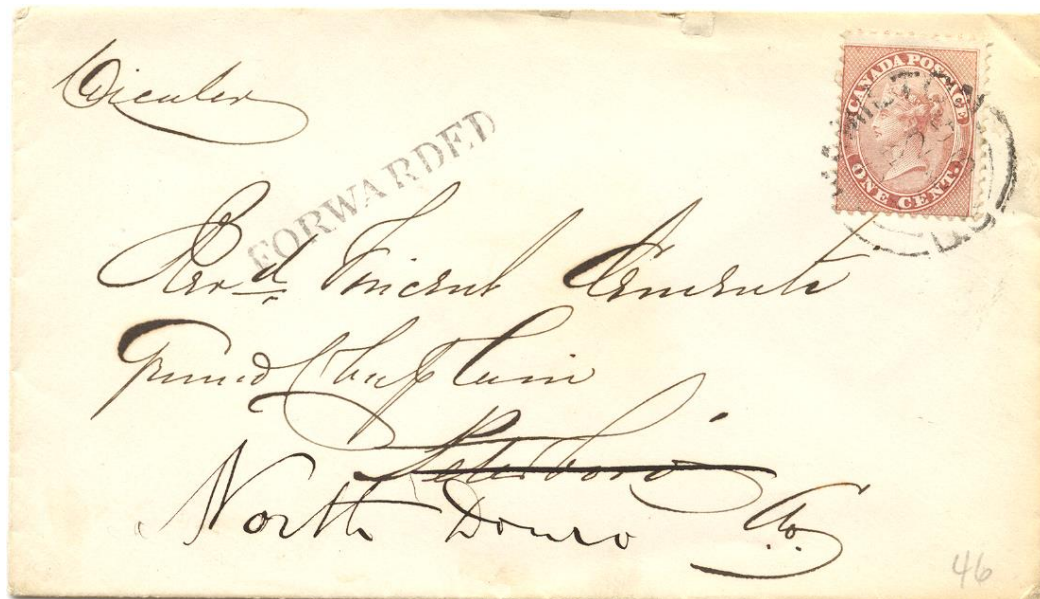 Circular
CANADA POSTAGE
ONE CENT
FORWARDED
Revd Vincent Clementi
Grand Chaplain
Peterboro'
North Douro Co.
46